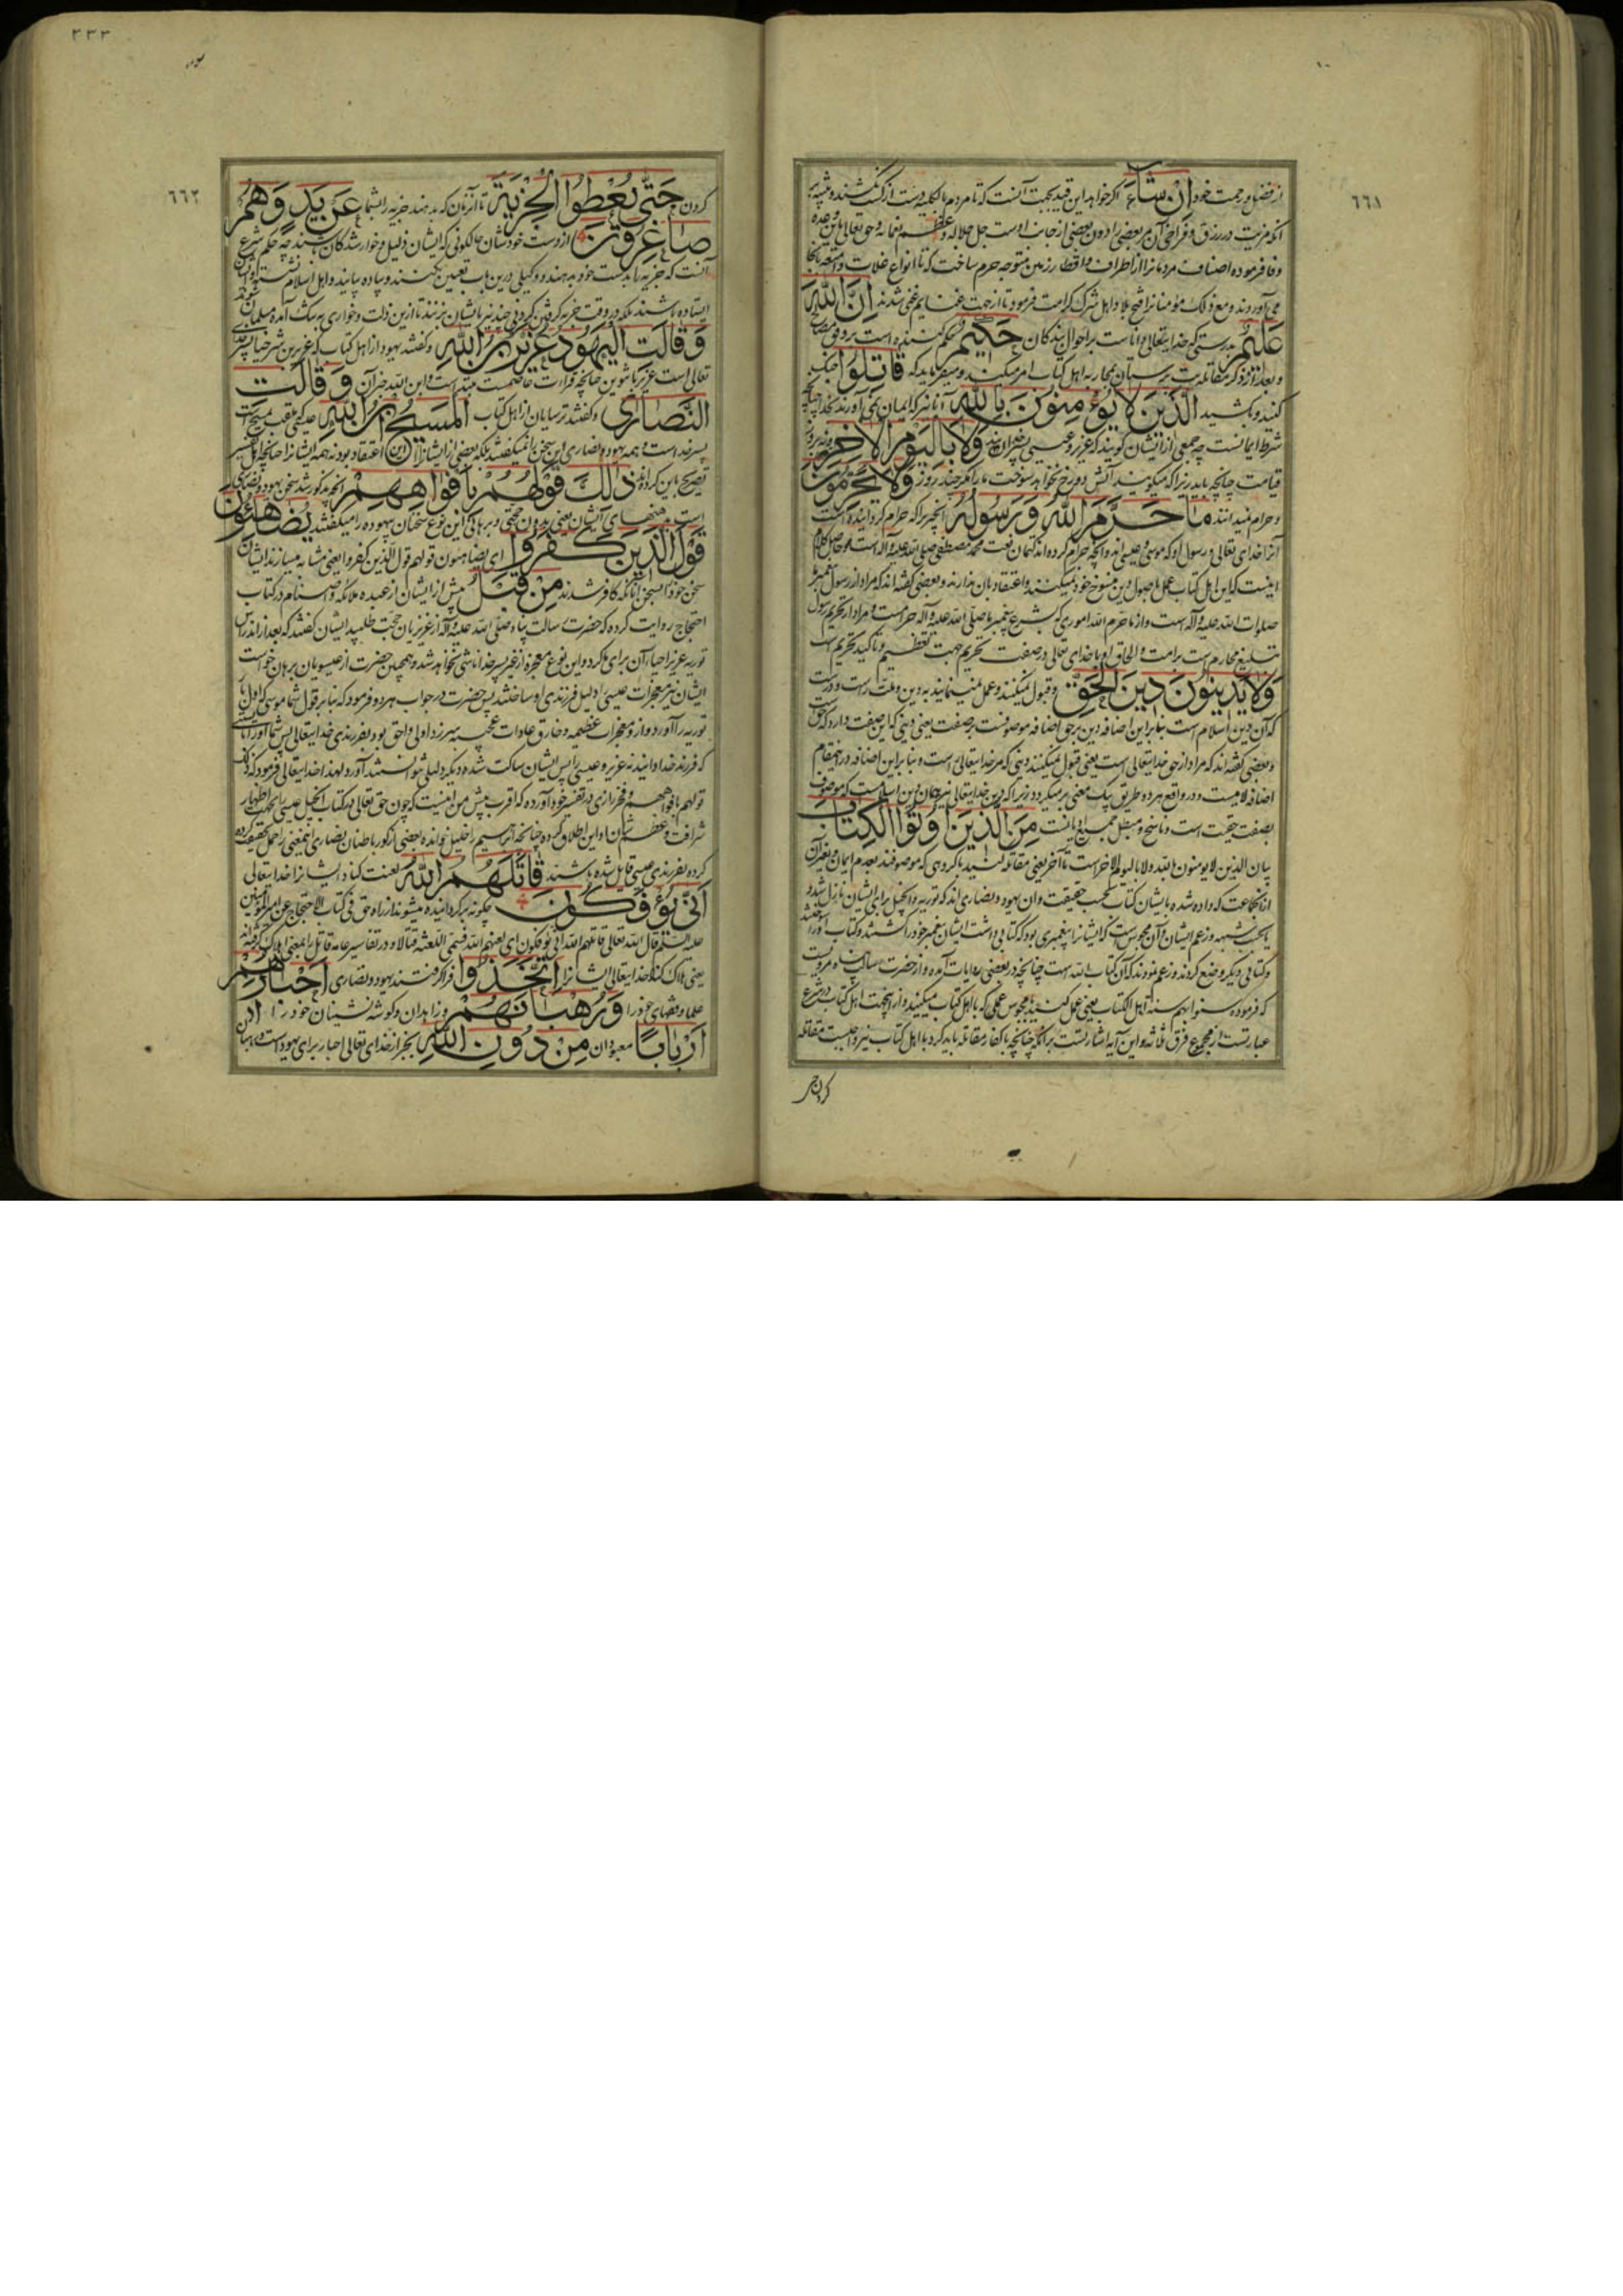 ٦٦١
از فضل و رحمت خود إِنْ شَاءَ اگر خواهد این قید بجهت آنست که تا مردم بالکلیه دست از کسب نکشند و
آنکه مزیت در رزق و فراخی آن مر بعضی را دون بعضی از جانب اوست جل جلاله و حق تعالی باین وعده
وفا فرموده اصناف مردمانرا از اطراف و اقطار زمین متوجه حرم ساخت که تا انواع غلات و امتعه بآنجا
می آوردند و مع ذلک مؤمنانرا فتح بلاد اهل شرک کرامت فرمود تا از جهت غنایم غنی شدند إِنَّ اللَّهَ
عَلِيمٌ بدرستی که خدایتعالی داناست بر احوال بندگان حَكِيمٌ حکم کننده است بر وفق مصالح
و بعد از ذکر مقاتله بت پرستان بمحاربه اهل کتاب امر میکند و میفرماید که قَاتِلُوا جنگ
کنید و بکشید الَّذِينَ لَا يُؤْمِنُونَ بِاللَّهِ آنانرا که ایمان نمی آورند بخدا چنانچه
شرط ایمانست چه جمعی از ایشان گویند که عزیر و عیسی پسران وَلَا بِالْيَوْمِ الْآخِرِ و نه بروز
قیامت چنانچه باید زیرا که میگویند آتش دوزخ نخواهد سوخت ما را مگر چند روز وَلَا يُحَرِّمُونَ
و حرام نمیدانند مَا حَرَّمَ اللَّهُ وَرَسُولُهُ آنچیزیرا که حرام گردانیده است
آنرا خدای تعالی و رسول او که موسی و عیسی اند و آنچه حرام کرده اند کتمان نعت محمد مصطفی صلی الله علیه و آله است و حاصل کلام
اینست که این اهل کتاب عمل باصول دین منسوخ خود نمیکنند و اعتقاد بآن ندارند و بعضی گفته اند که مراد از رسول پیغمبر ما
صلوات الله علیه و آله است و از ما حرّم الله اموری که بشرع پیغمبر ما صلّی الله علیه و آله حرامست و مراد از تحریم رسول
تبلیغ محارم است بر امت و الحاق او با خدای تعالی در صفت تحریم جهت تعظیم و تاکید تحریم است
وَلَا يَدِينُونَ دِينَ الْحَقِّ و قبول نمیکنند و عمل نمینمایند به دین و ملت راست و درست
که آن دین اسلام است بنابراین اضافه دین بر حق اضافه موصوفست بر صفت یعنی دینی که این صفت دارد که حق
و بعضی گفته اند که مراد از حق خدایتعالی است یعنی قبول نمیکنند دینی که مر خدایتعالی است و بنابراین اضافه در اینمقام
اضافه لامیست و در واقع هر دو طریق بیک معنی بر میگردد زیرا که دین خدایتعالی نیز همان دین اسلامست که موصوف
بصفت حقیت است و ناسخ و مبطل جمیع ادیانست مِنَ الَّذِينَ أُوتُوا الْكِتَابَ
بیان الذین لا یومنون بالله و لا بالیوم الآخر است تا آخر یعنی مقاتله کنید با گروهی که موصوفند بعدم ایمان و بغیر آن
از آنجماعت که داده شده بایشان کتاب بحسب حقیقت و آن یهود و نصاری اند که توریة و انجیل برای ایشان نازل شد و
یا بحسب شبهه و زعم ایشان و آن مجوس است که ایشانرا پیغمبری بود که کتابی داشت ایشان پیغمبر خود را کشتند و کتاب او را سوختند
و کتابی دیگر وضع کردند و زعم نمودند که آن کتاب الله است چنانچه در بعضی روایات آمده و از حضرت رسالت پناه مرویست
که فرموده سنوا بهم سنة اهل الکتاب یعنی عمل کنید با مجوس عملی که با اهل کتاب میکنید و از اینجهت اهل کتاب در شرع
عبارتست از مجموع فرق ثلاثه و این آیه اشارتست بر آنکه چنانچه با کفار مقاتله باید کرد با اهل کتاب نیز واجبست مقاتله
کردن حتی
٣٣٣
٦٦٢
کردن حَتَّى يُعْطُوا الْجِزْيَةَ تا آن زمان که بدهند جزیه را بشما عَنْ يَدٍ وَهُمْ
صَاغِرُونَ از دست خودشان حالکونی که ایشان ذلیل و خوار شدگان باشند چه حکم شرع
آنست که جزیه را بدست خود بدهند و وکیلی درین باب تعیین نکنند و پیاده بیایند و اهل اسلام نشسته و ایشان
ایستاده باشند بلکه در وقت جزیه گرفتن گردنی چند نیز بایشان بزنند تا ازین ذلت و خواری به تنگ آمده مسلمان شوند
وَقَالَتِ الْيَهُودُ عُزَيْرٌ ابْنُ اللَّهِ و گفتند یهود از اهل کتاب که عزیر بن شرحیا پسر خدای
تعالی است عزیر با تنوین چنانچه قراءت عاصمست مبتداست و ابن الله خبر آن وَقَالَتِ
النَّصَارَى و گفتند ترسایان از اهل کتاب الْمَسِيحُ ابْنُ اللَّهِ عیسی که ملقب بمسیح است
پسر خداست و همه یهود و نصاری این سخن را نمیگفتند بلکه بعضی از ایشانرا این اعتقاد بود نه همه ایشانرا چنانچه اهل تفسیر
تصریح باین کرده اند ذَلِكَ قَوْلُهُمْ بِأَفْوَاهِهِمْ آنچه مذکور شد سخن یهود و نصاری
است بدهنهای ایشان یعنی بدون حجتی و برهانی این نوع سخنان بیهوده را میگفتند يُضَاهِئُونَ
قَوْلَ الَّذِينَ كَفَرُوا ای یضاهئون قولهم قول الذین کفروا یعنی مشابه میسازند ایشان
سخن خود را بسخن آنانکه کافر شدند مِنْ قَبْلُ پیش از ایشان از عبده ملائکه و اصنام در کتاب
احتجاج روایت کرده که حضرت رسالت پناه صلّی الله علیه و آله از عزیریان حجت طلبید ایشان گفتند که بعد از اندراس
توریه عزیر احیاء آن برای ما کرد و این نوع معجزه از غیر پسر خدا ناشی نخواهد شد و همچنین حضرت از عیسویان برهان خواست
ایشان نیز معجزات عیسی را دلیل فرزندی او ساختند پس حضرت در جواب هر دو فرمود که بنابر قول شما موسی که اول بار
توریه را آورد و ازو معجزات عظیمه و خارق عادات عجیبه سر زد اولی و احق بود بفرزندی خدایتعالی پس شما او را بایستی
که فرزند خدا دانید نه عزیر و عیسی را پس ایشان ساکت شده دیگر دلیلی نتوانستند آورد لهذا خدایتعالی فرمود که ذلک
قولهم بافواههم و فخر رازی در تفسیر خود آورده که اقرب پیش من اینست که چون حق تعالی در کتاب انجیل عیسی را بجهت اظهار
شرافت و عظم شان او ابن اطلاق کرده چنانچه ابراهیم را خلیل خوانده بعضی از کور باطنان نصاری اینمعنی را حمل بحقیقت
کرده بفرزندی عیسی قایل شده باشند قَاتَلَهُمُ اللَّهُ لعنت کناد ایشانرا خدایتعالی
أَنَّى يُؤْفَكُونَ چگونه برگردانیده میشوند از راه حق فی کتاب الاحتجاج عن امیر المؤمنین
علیه السلم قال الله تعالی قاتلهم الله انی یؤفکون ای لعنهم الله فسمّی اللعنة قتالا و در تفاسیر عامه قاتل را بمعنی اهلک گرفته اند
یعنی هلاک کند خدایتعالی ایشانرا اتَّخَذُوا فراگرفتند یهود و نصاری أَحْبَارَهُمْ
علما و فضلای خود را وَرُهْبَانَهُمْ و زاهدان و گوشه نشینان خود را
أَرْبَابًا معبودان مِنْ دُونِ اللَّهِ بجز از خدای تعالی احبار برای یهود است و